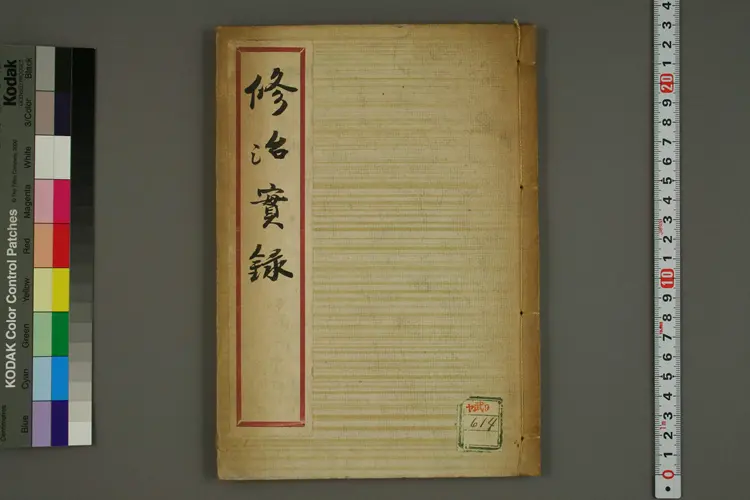 修治實録
614
Kodak
KODAK Color Control Patches
Blue
Cyan
Green
Yellow
Red
Magenta
White
3/Color
Black
4
3
2
1
20
9
8
7
6
5
4
3
2
1
10
9
8
7
6
5
4
3
2
1
0